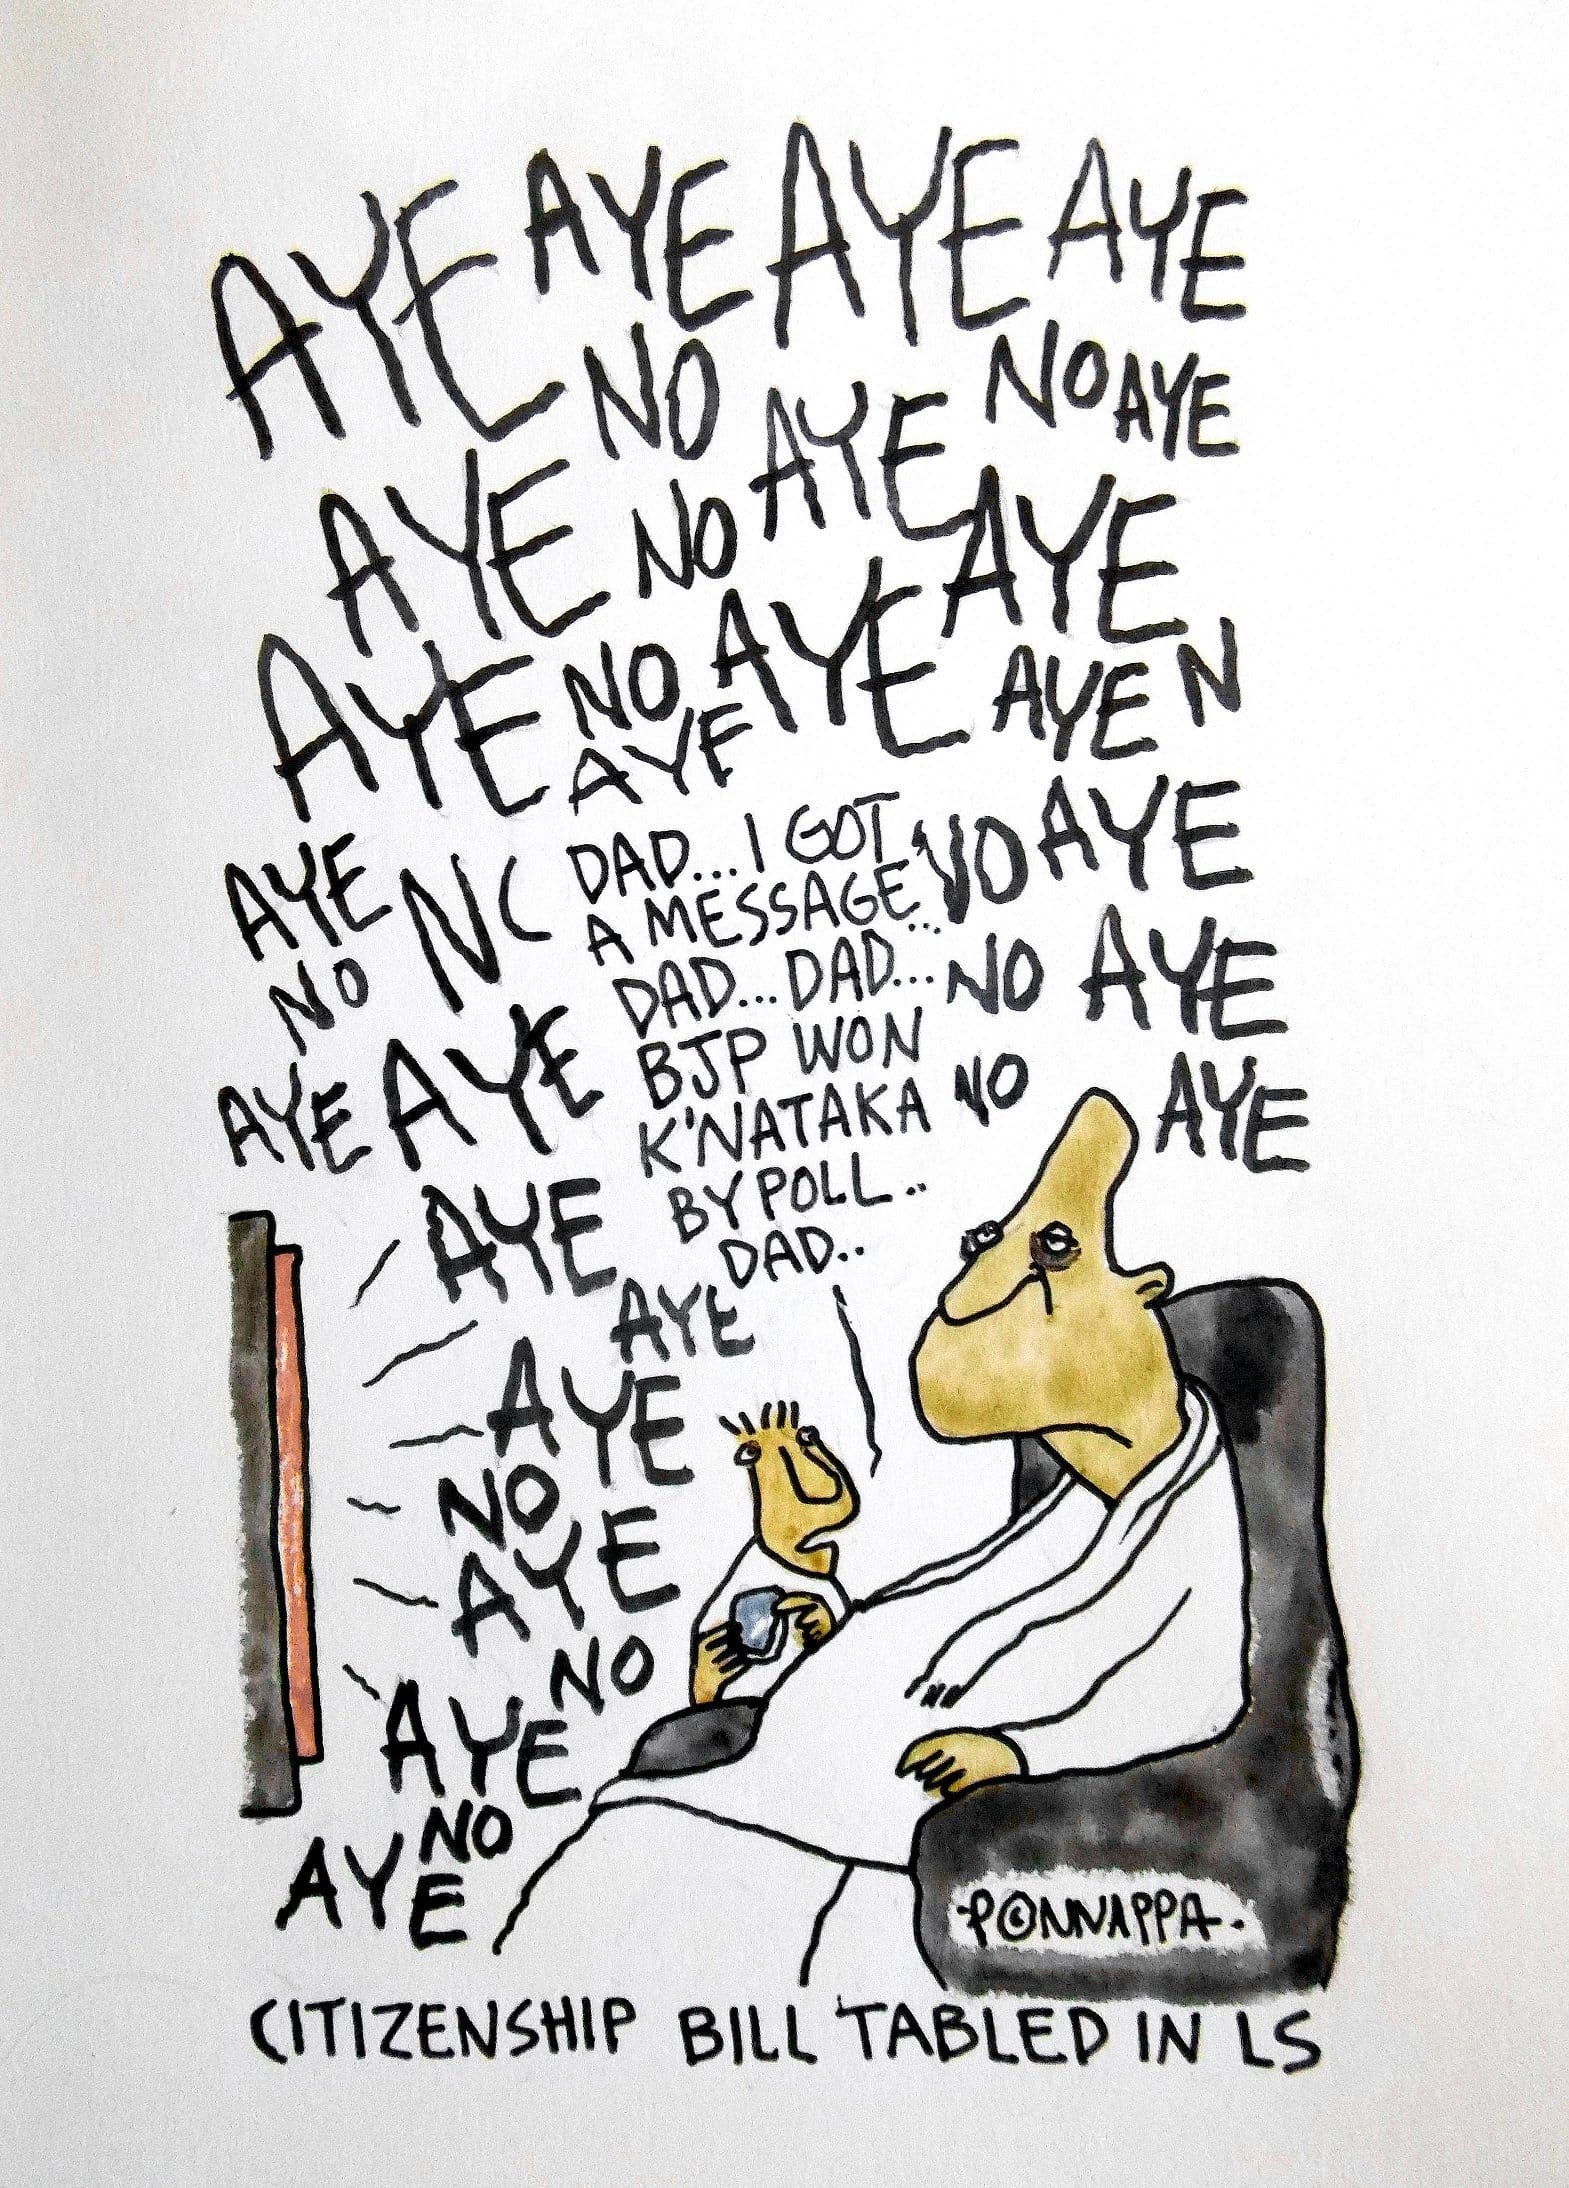 AYE AYE AYE AYE
NO NO AYE
AYE NO AYE AYE
AYE NO AYE AYE N
AYE
AYE NC
NO
DAD... I GOT
A MESSAGE...
DAD... DAD...
BJP WON
K'NATAKA
BYPOLL..
DAD..
NO AYE
NO AYE
NO AYE
AYE AYE
AYE
AYE
AYE
NO
AYE
NO
AYE
NO
AYE
PONNAPPA
CITIZENSHIP BILL TABLED IN LS